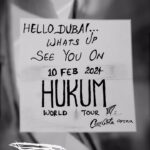 HELLO, DUBAI...
WHATS UP
SEE YOU ON
10 FEB 2024
HUKUM
WORLD TOUR